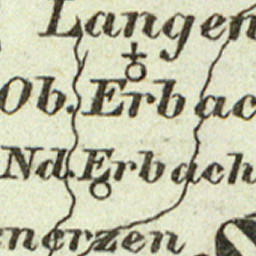 Langen
Ob. Erbac
Nd. Erbach
nerzen